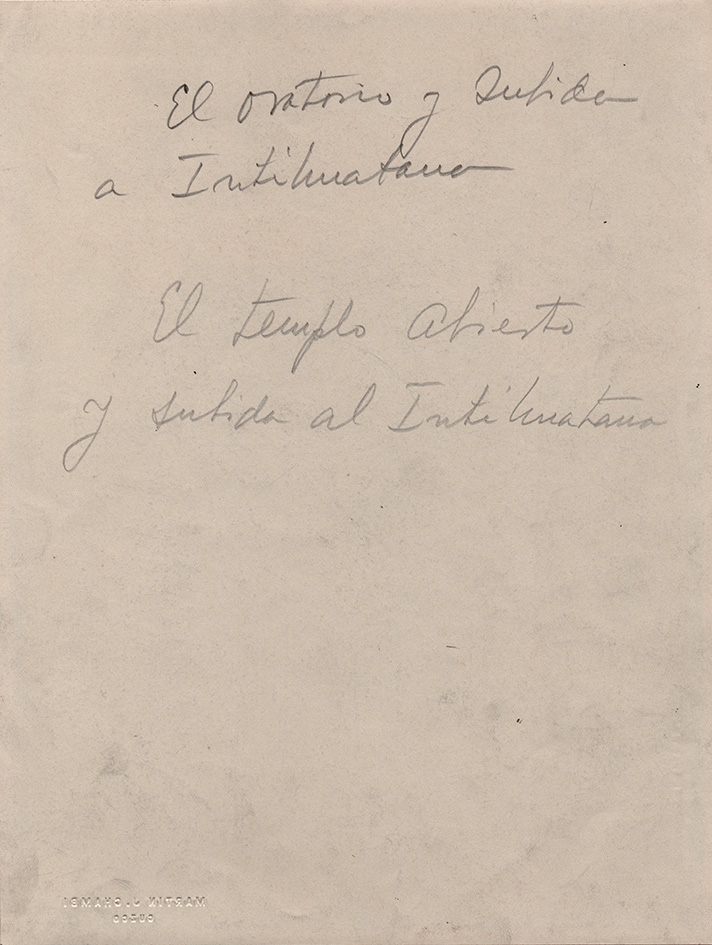 El oratorio y subida
a Intihuatana
El templo abierto
y subida al Intihuatana
MARTIN J. CHAMBI
CUZCO